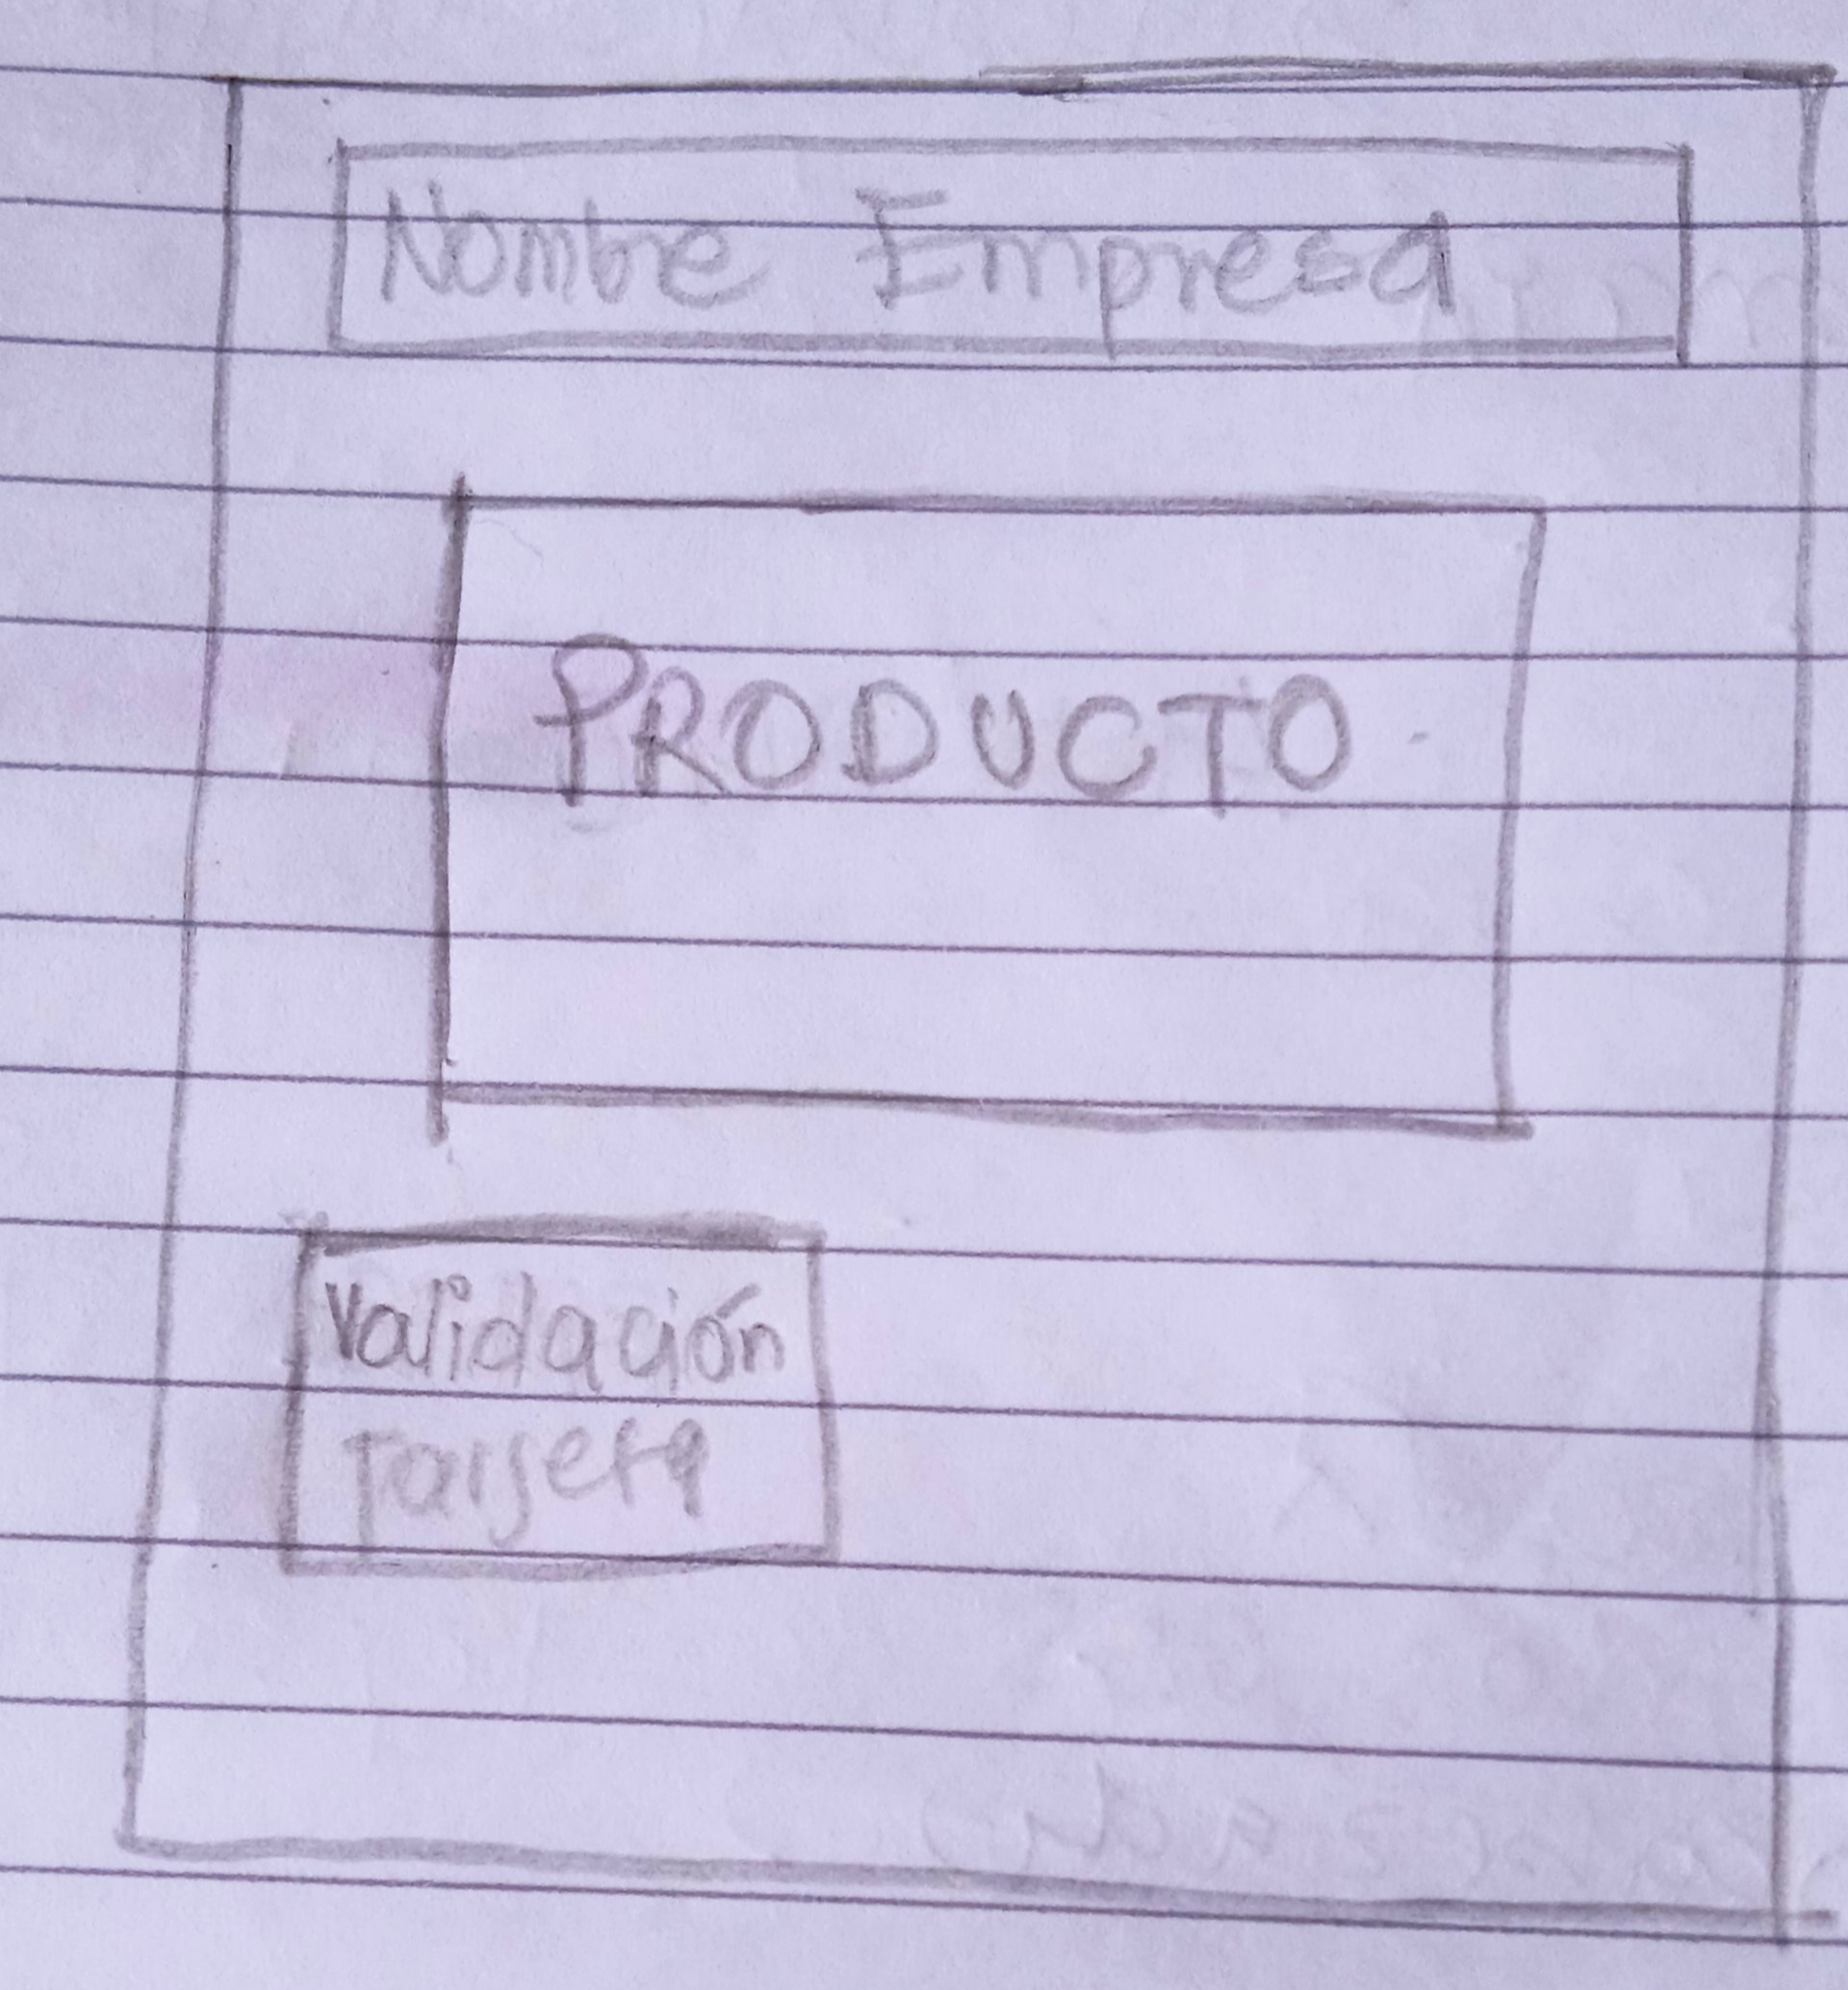 Nombre Empresa
PRODUCTO
Validación
Tarjeta